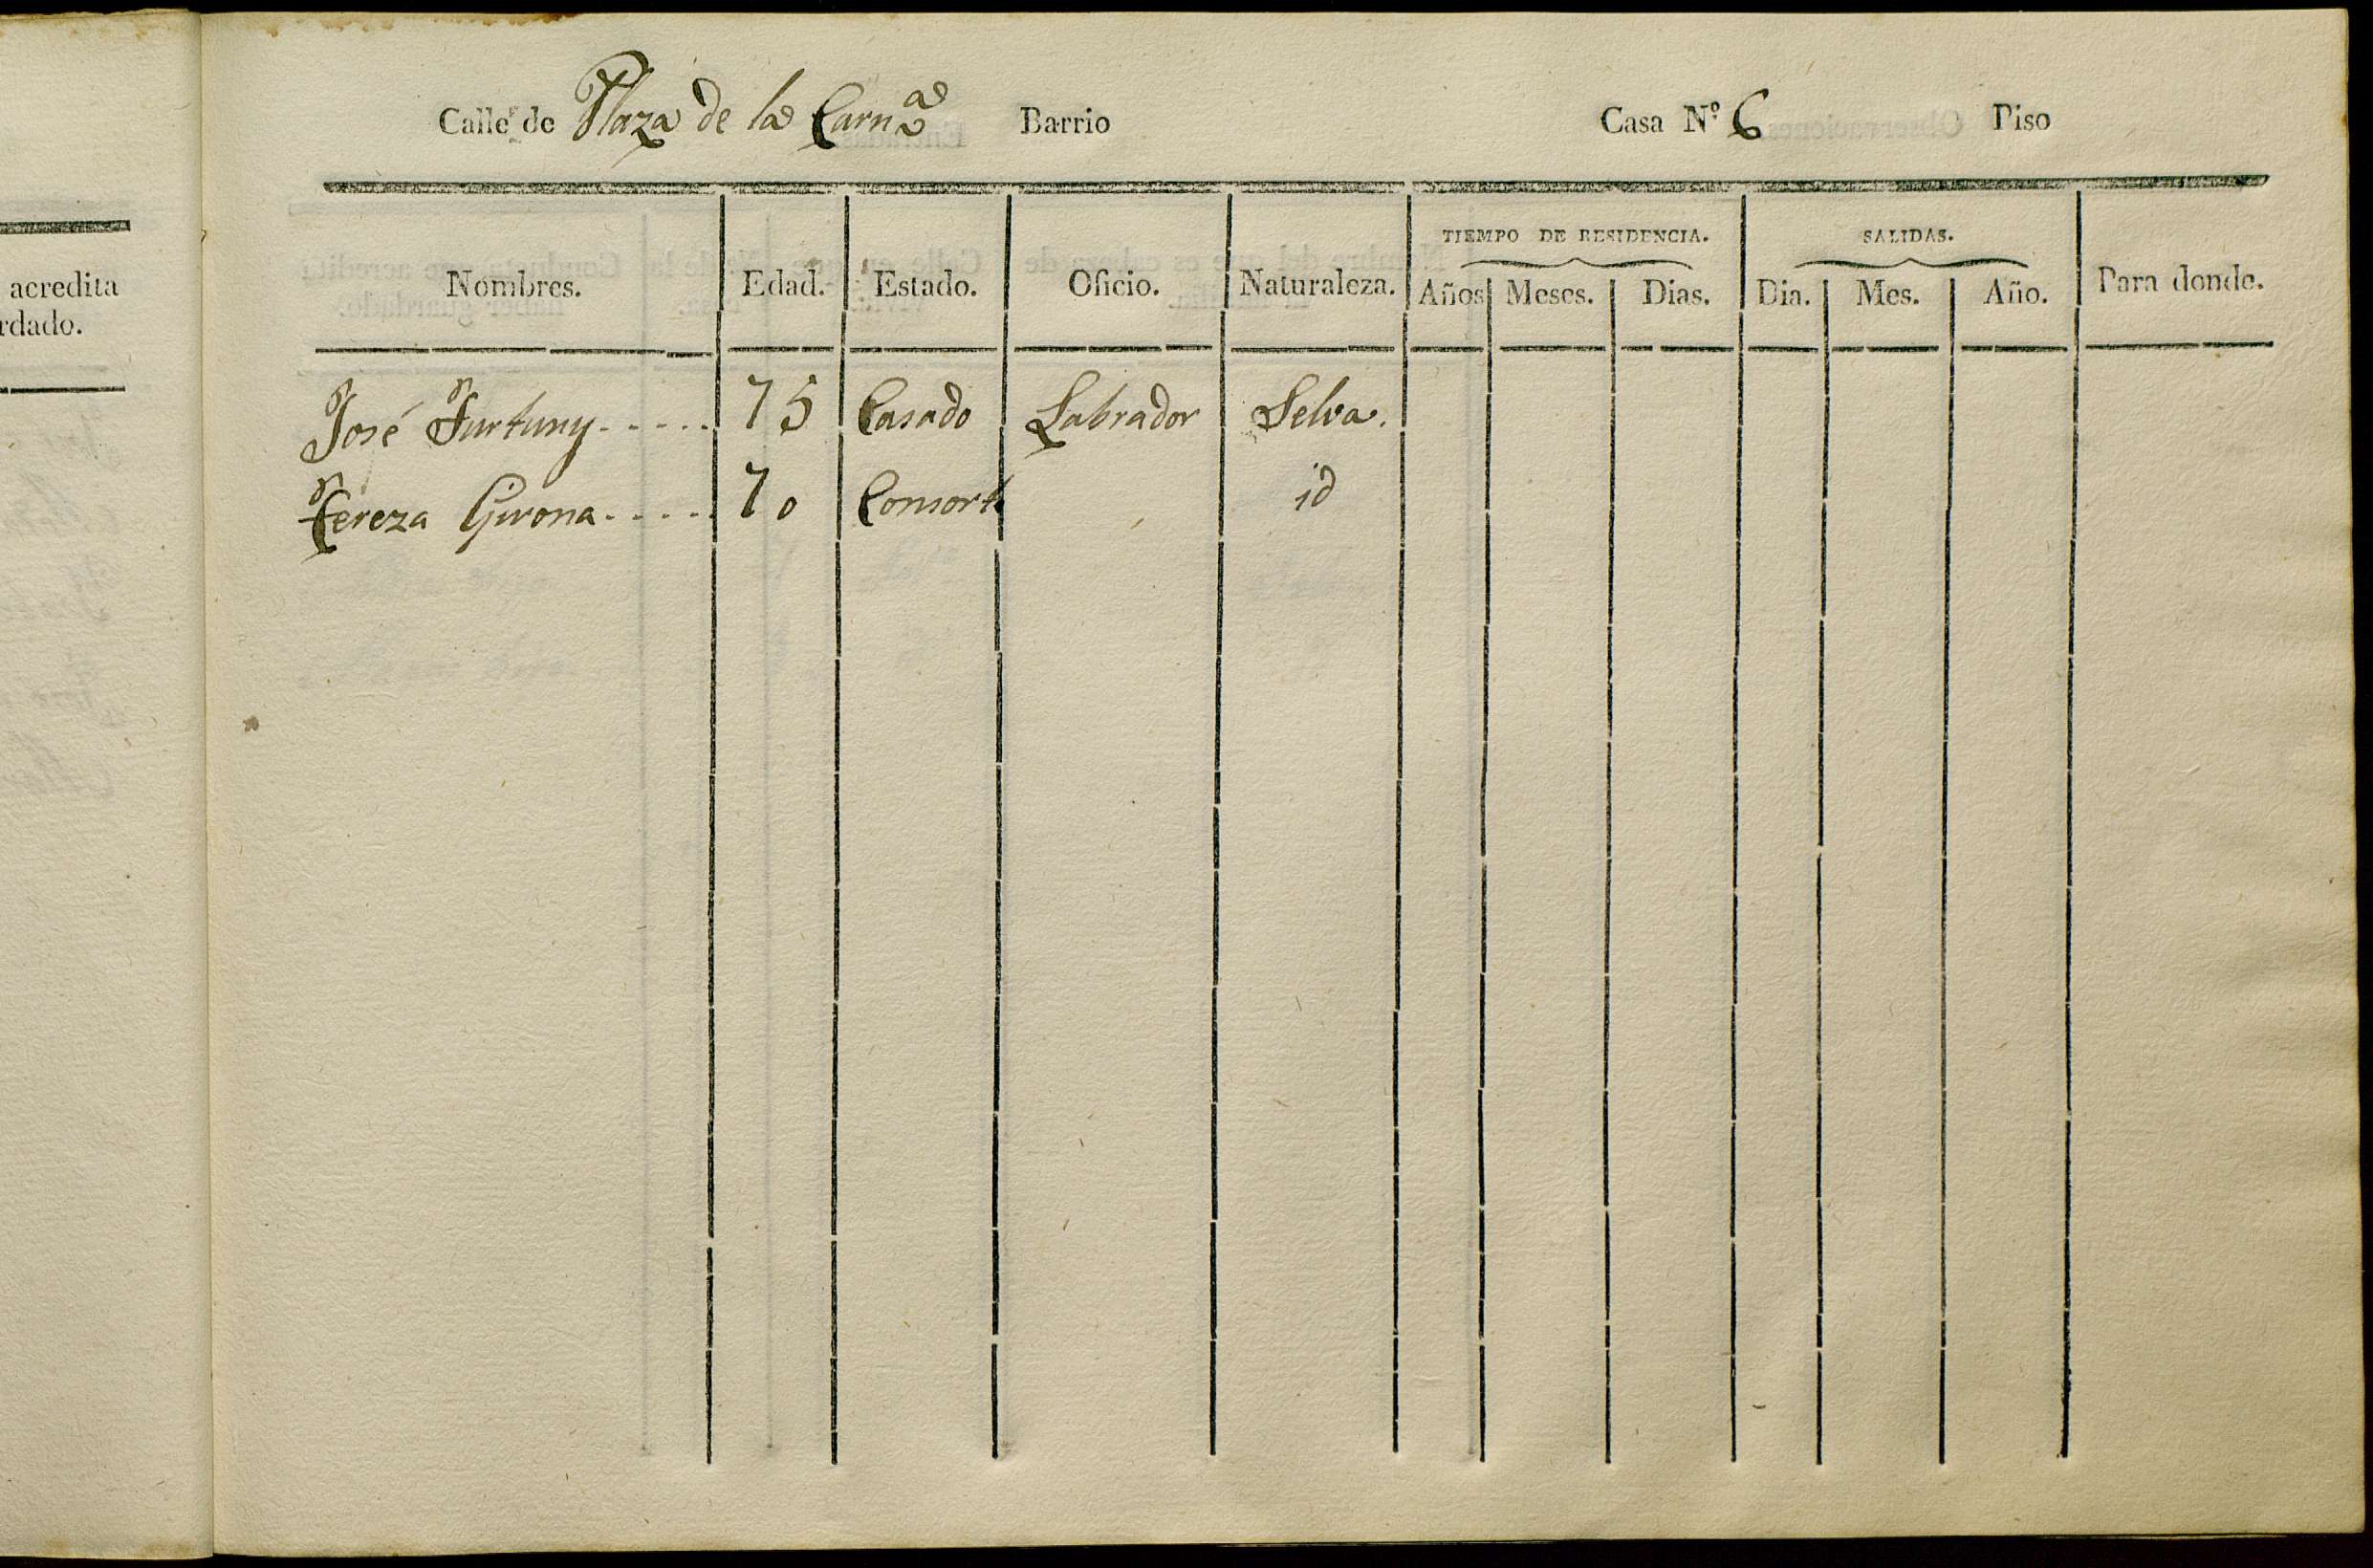 acredita
rdado.
Calle de Plaza de la Carnª Barrio Casa N.º 6 Piso
Nombres. Edad. Estado. Oficio. Naturaleza. TIEMPO DE RESIDENCIA. SALIDAS. Para donde.
Años Meses. Dias. Dia. Mes. Año.
José Furtuny 75 Casado Labrador Selva.
Tereza Girona 70 Consort id